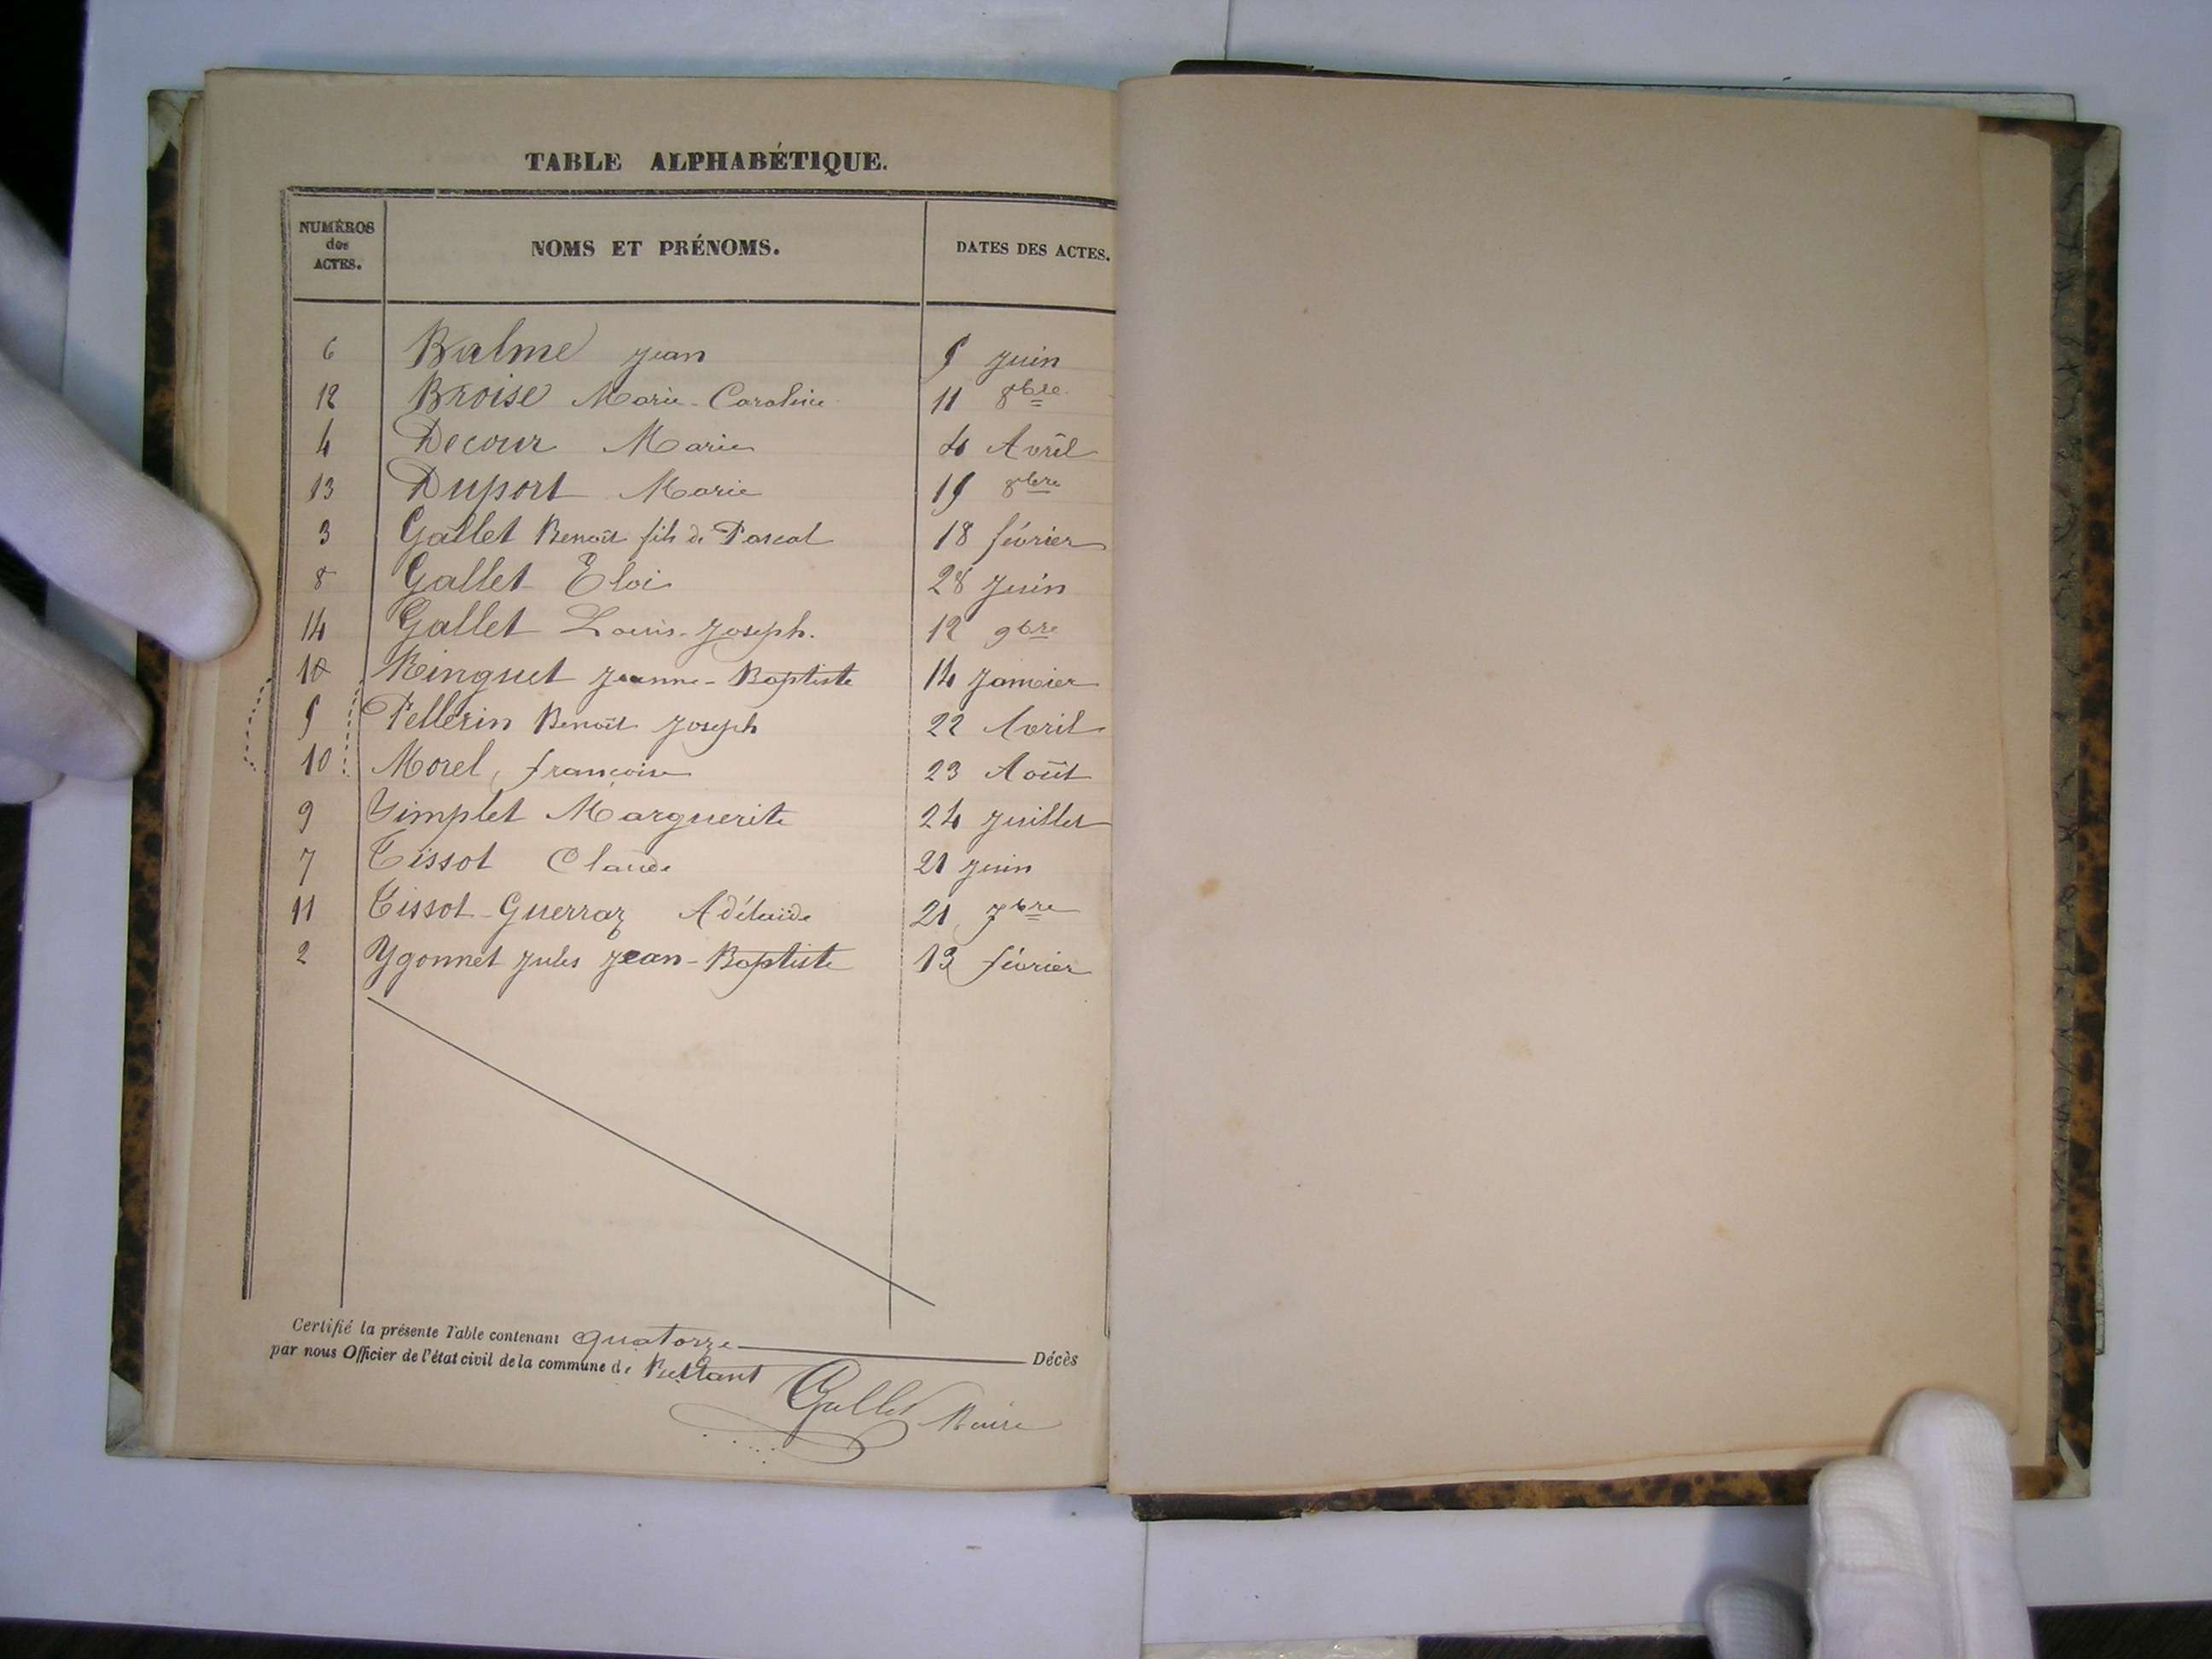 TABLE ALPHABÉTIQUE.
NUMÉROS des ACTES. NOMS ET PRÉNOMS. DATES DES ACTES.
6 Balme Jean 5 juin
12 Broise Marie-Caroline 11 8bre
4 Decour Marie 4 Avril
13 Duport Marie 15 8bre
3 Gallet Benoît fils de Pascal 18 février
8 Gallet Eloi 28 juin
14 Gallet Louis-Joseph. 12 9bre
Jeanne-Baptiste 14 Janvier
5 Pellerin Benoît Joseph 22 Avril
10 Morel, françoise 23 Août
9 Simplet Marguerite 24 juillet
7 Tissot Claude 21 juin
11 Tissot-Guerraz Adélaïde 21 7bre
2 Ygonnet Jules Jean-Baptiste 13 février
Certifié la présente Table contenant quatorze Décès
par nous Officier de l'état civil de la commune de
Gallet Maire